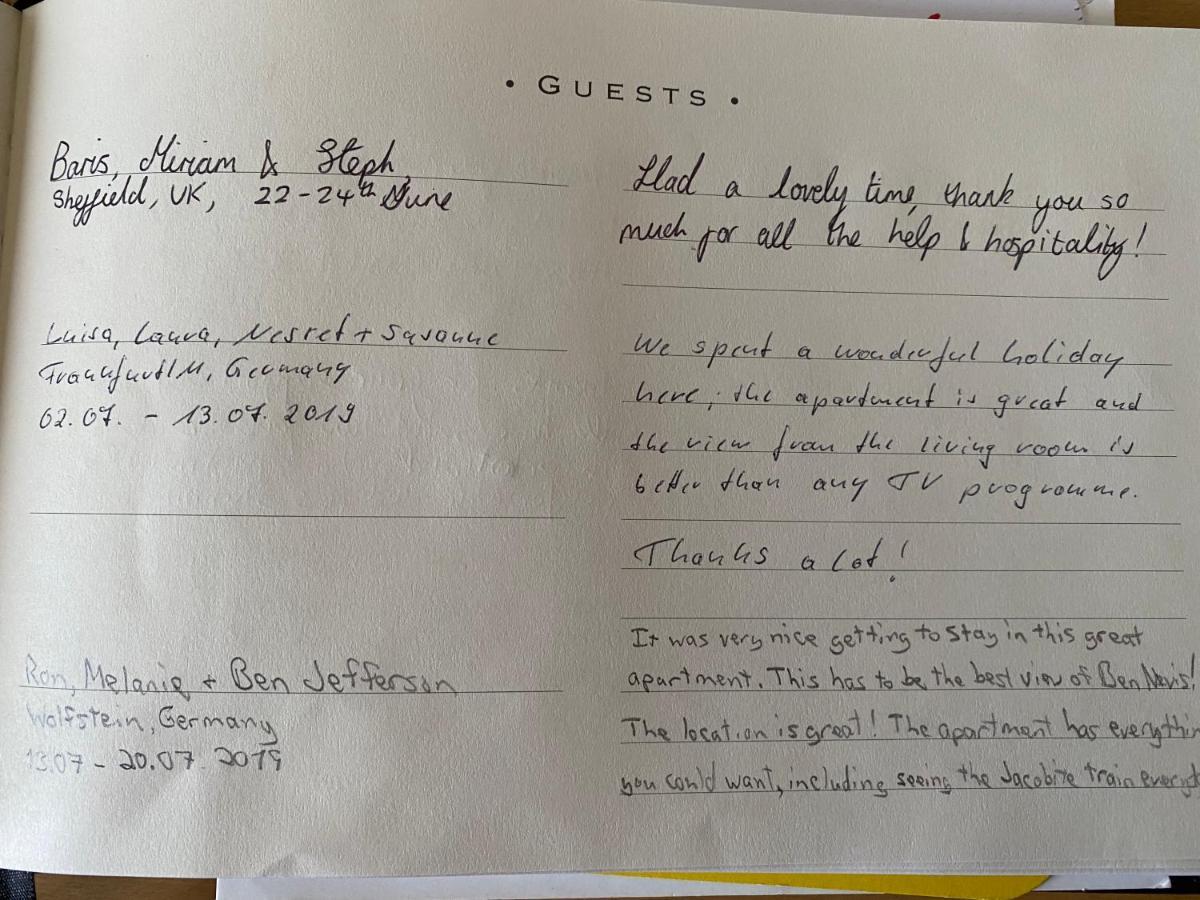 • GUESTS •
Baris, Miriam & Steph,
Sheffield, UK, 22-24th June
Had a lovely time, thank you so
much for all the help & hospitality!
Luisa, Laura, Nesret + Susanne
Frankfurt/M, Germany
02.07. - 13.07. 2019
We spent a wonderful holiday
here; the apartment is great and
the view from the living room is
better than any TV programme.
Thanks a lot!
Ron, Melanie + Ben Jefferson
Wolfstein, Germany
13.07 - 20.07. 2019
It was very nice getting to stay in this great
apartment. This has to be the best view of Ben Nevis!
The location is great! The apartment has everythin
you could want, including seeing the Jacobite train everyd